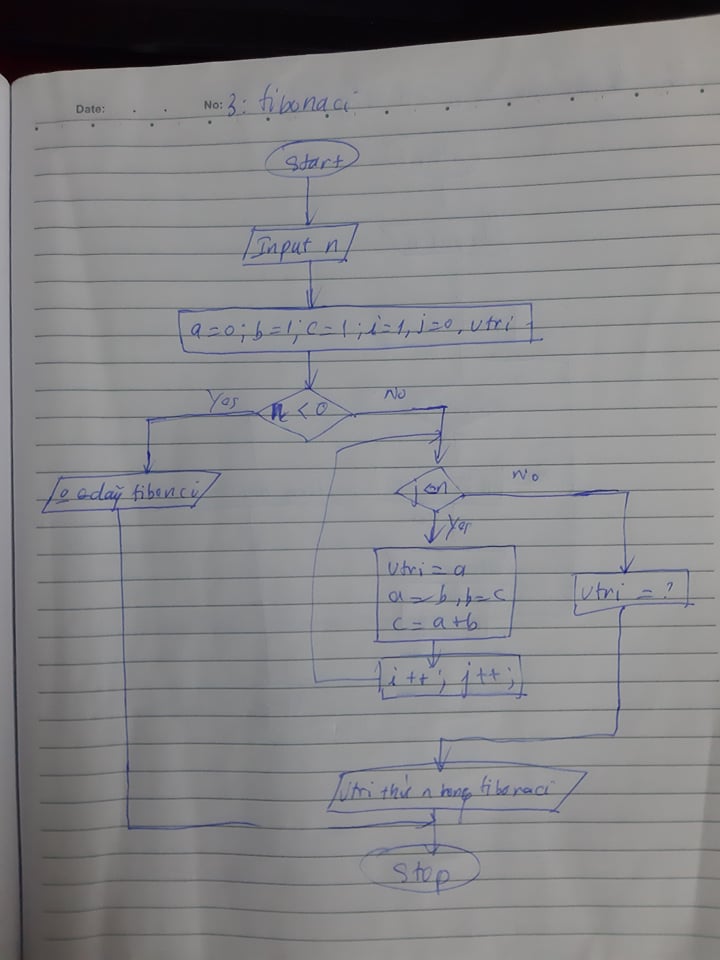 Date: . . No: 3: fibonaci
Start
Input n
a=0; b=1; c=1; i=1, j=0, vtri
Yes
n < 0
No
dãy fibonci
No
Yes
vtri = a
a=b, b=c
c = a+b
vtri = ?
i++; j++;
vtri thứ n trong fibonaci
Stop